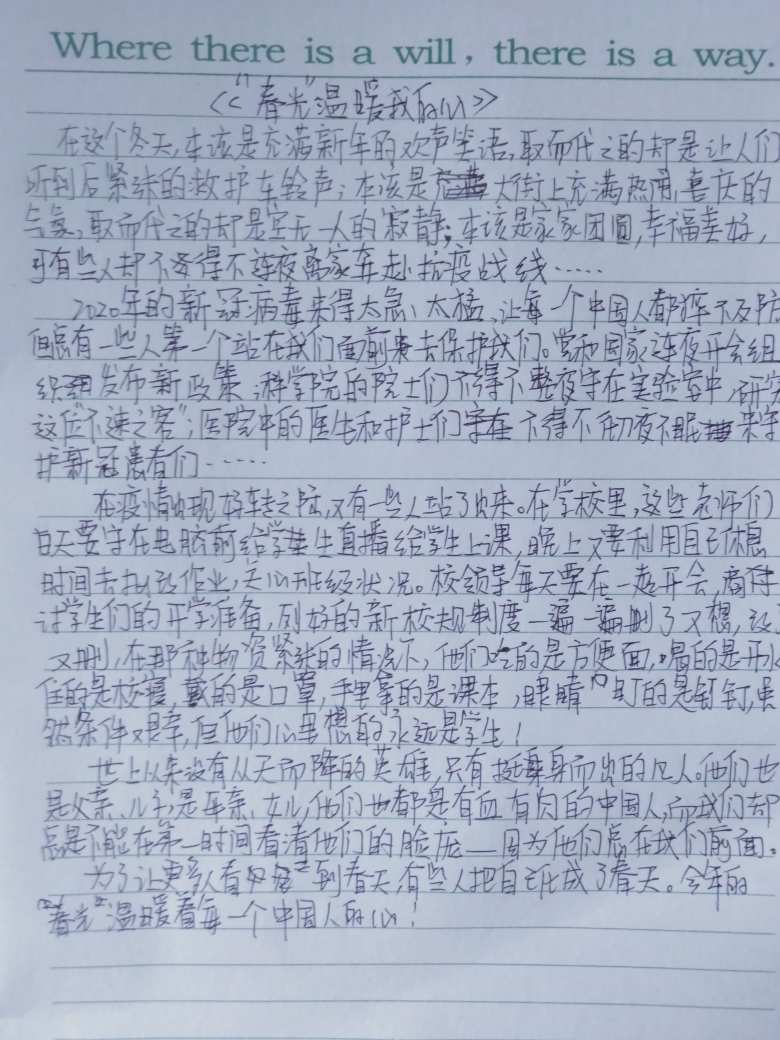 Where there is a will, there is a way.
《“春光”温暖我的心》
在这个冬天,本该是充满新年的欢声笙语,取而代之的却是让人们
听到后紧张的救护车铃声;本该是大街上充满热闹喜庆的
气氛,取而代之的却是空无一人的寂静;本该是家家团圆,幸福美好,
可有些人却不得不连夜离家奔赴抗疫战线……
2020年的新冠病毒来得太急、太猛,让每一个中国人都猝不及防
但总有一些人第一个站在我们面前去保护我们。党和国家连夜开会组
织发布新政策;科学院的院士们不得不整夜守在实验室中,研究
这位“不速之客”;医院中的医生和护士们不得不彻夜不眠来守
护新冠患者们……
在疫情出现好转之际,又有一些人站了出来。在学校里,这些老师们
白天要守在电脑前给学生直播给学生上课,晚上又要利用自己休息
时间去批改作业,关心班级状况。校领导每天要在一起开会,商
讨学生们的开学准备,列好的新校规制度一遍一遍删了又想,设
又删,在那种物资紧张的情况下,他们吃的是方便面,喝的是开水
住的是校寝,戴的是口罩,手里拿的是课本,眼睛盯的是钉钉,虽
然条件艰辛,但他们心里想的永远是学生!
世上从来没有从天而降的英雄,只有挺身而出的凡人。他们也
是父亲、儿子,是母亲、女儿,他们也都是有血有肉的中国人,而我们却
总是不能在第一时间看清他们的脸庞——因为他们总在我们前面。
为了让更多人看到春天,有些人把自己化成了春天。今年的
“春光”温暖着每一个中国人的心!